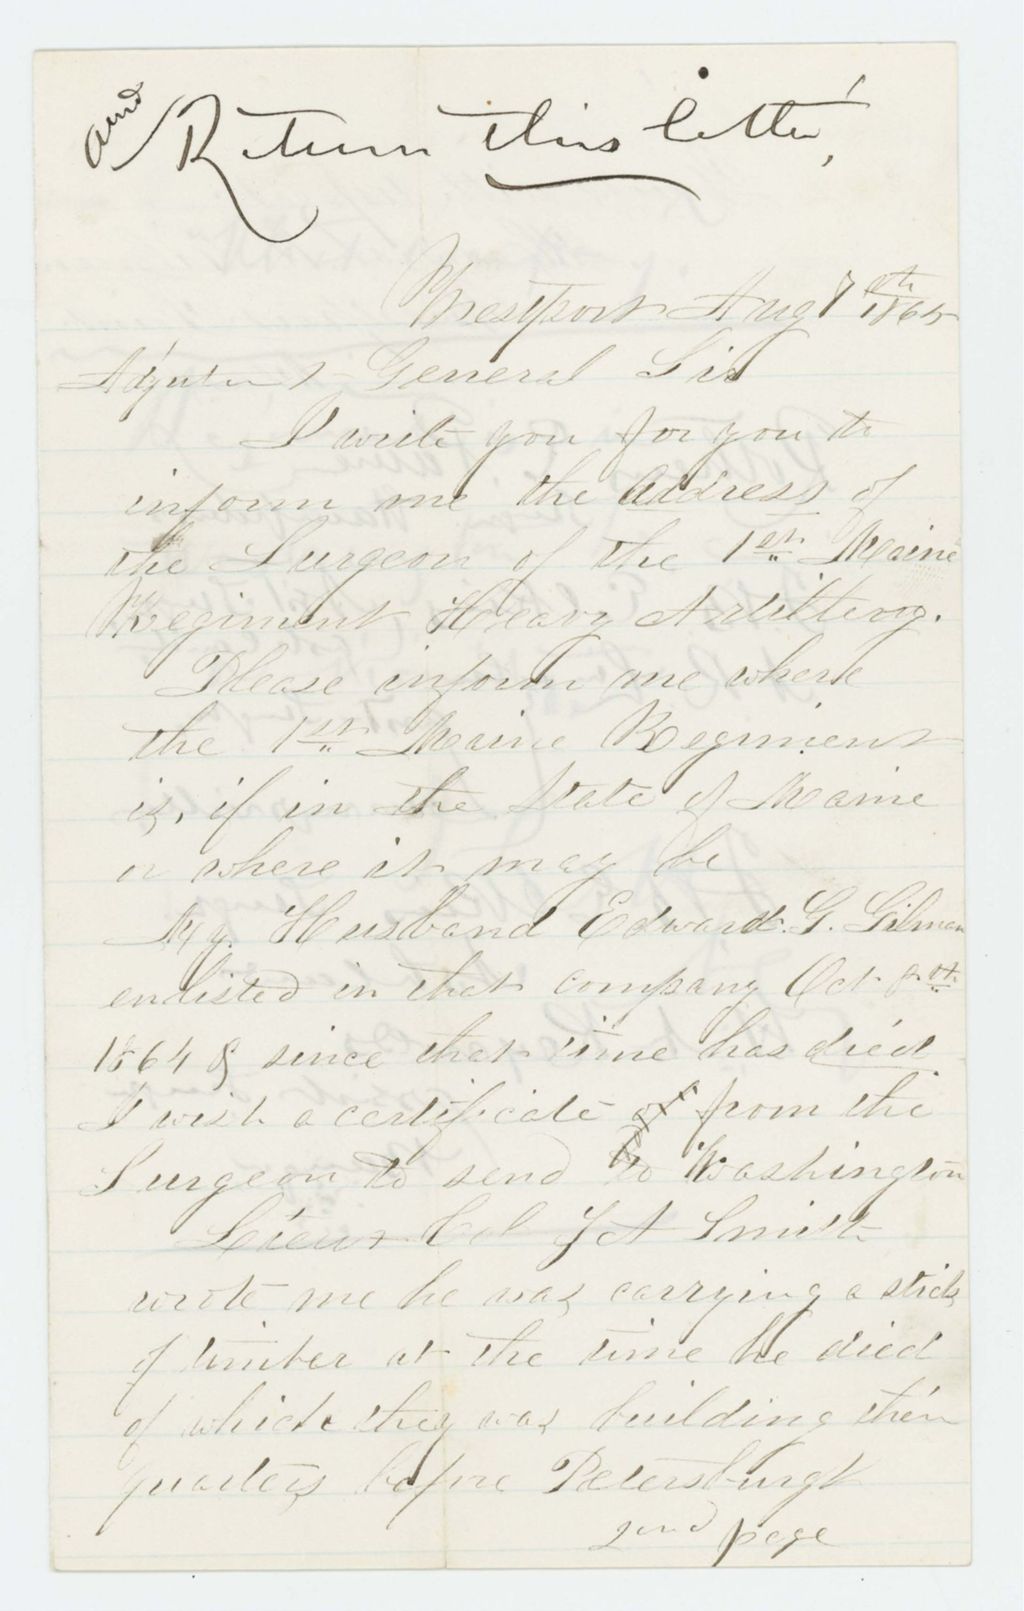 and Return this letter,
Westport Aug 7th 1865
Adjutant General Sir
I write you for you to
inform me the Address of
the Surgeon of the 1st Maine
Regiment Heavy Artillery.
Please inform me where
the 1st Maine Regiment
is, if in the State of Maine
or where it may be
My Husband Edward. G. Gilman
enlisted in that company Oct 8th
1864 & since that time has died
I wish a certificate from the
Surgeon to send to Washington
Lieut Col Smith
wrote me he was carrying a stick
of timber at the time he died
of which they was building their
quarters before Petersburgh
2nd page